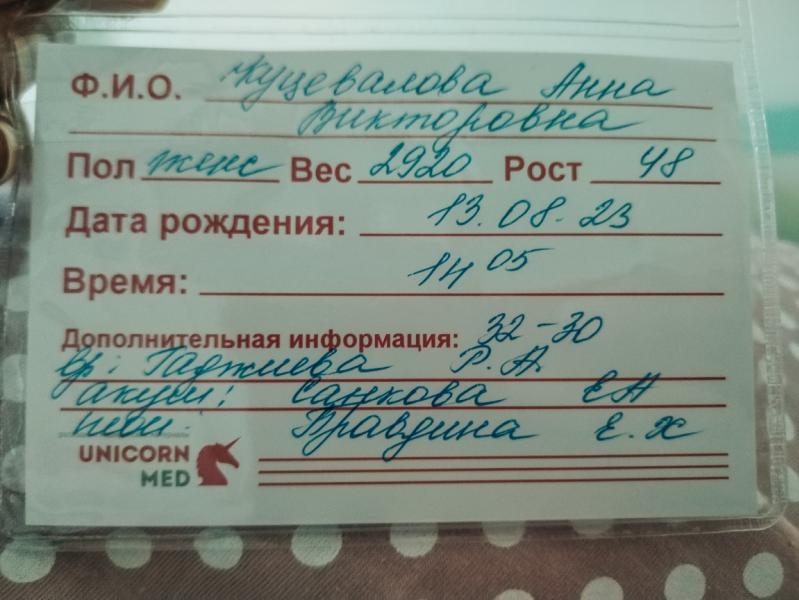 Ф.И.О. Куцевалова Анна
Викторовна
Пол женс Вес 2920 Рост 48
Дата рождения: 13.08.23
Время: 14 05
Дополнительная информация: 32-30
вр: Гаджиева Р.А.
акуш: Санкова ЕА
Правдина Е.Х
UNICORN
MED